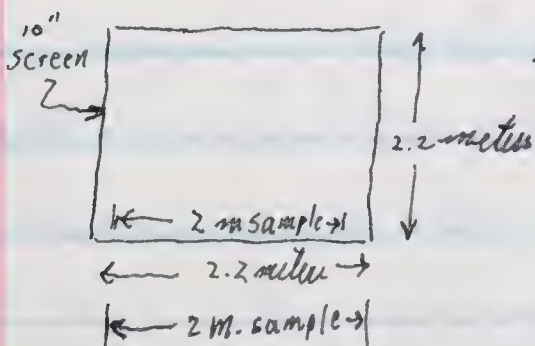 10"
screen
2.2 meters
2 m sample
2.2 meter
2 m. sample